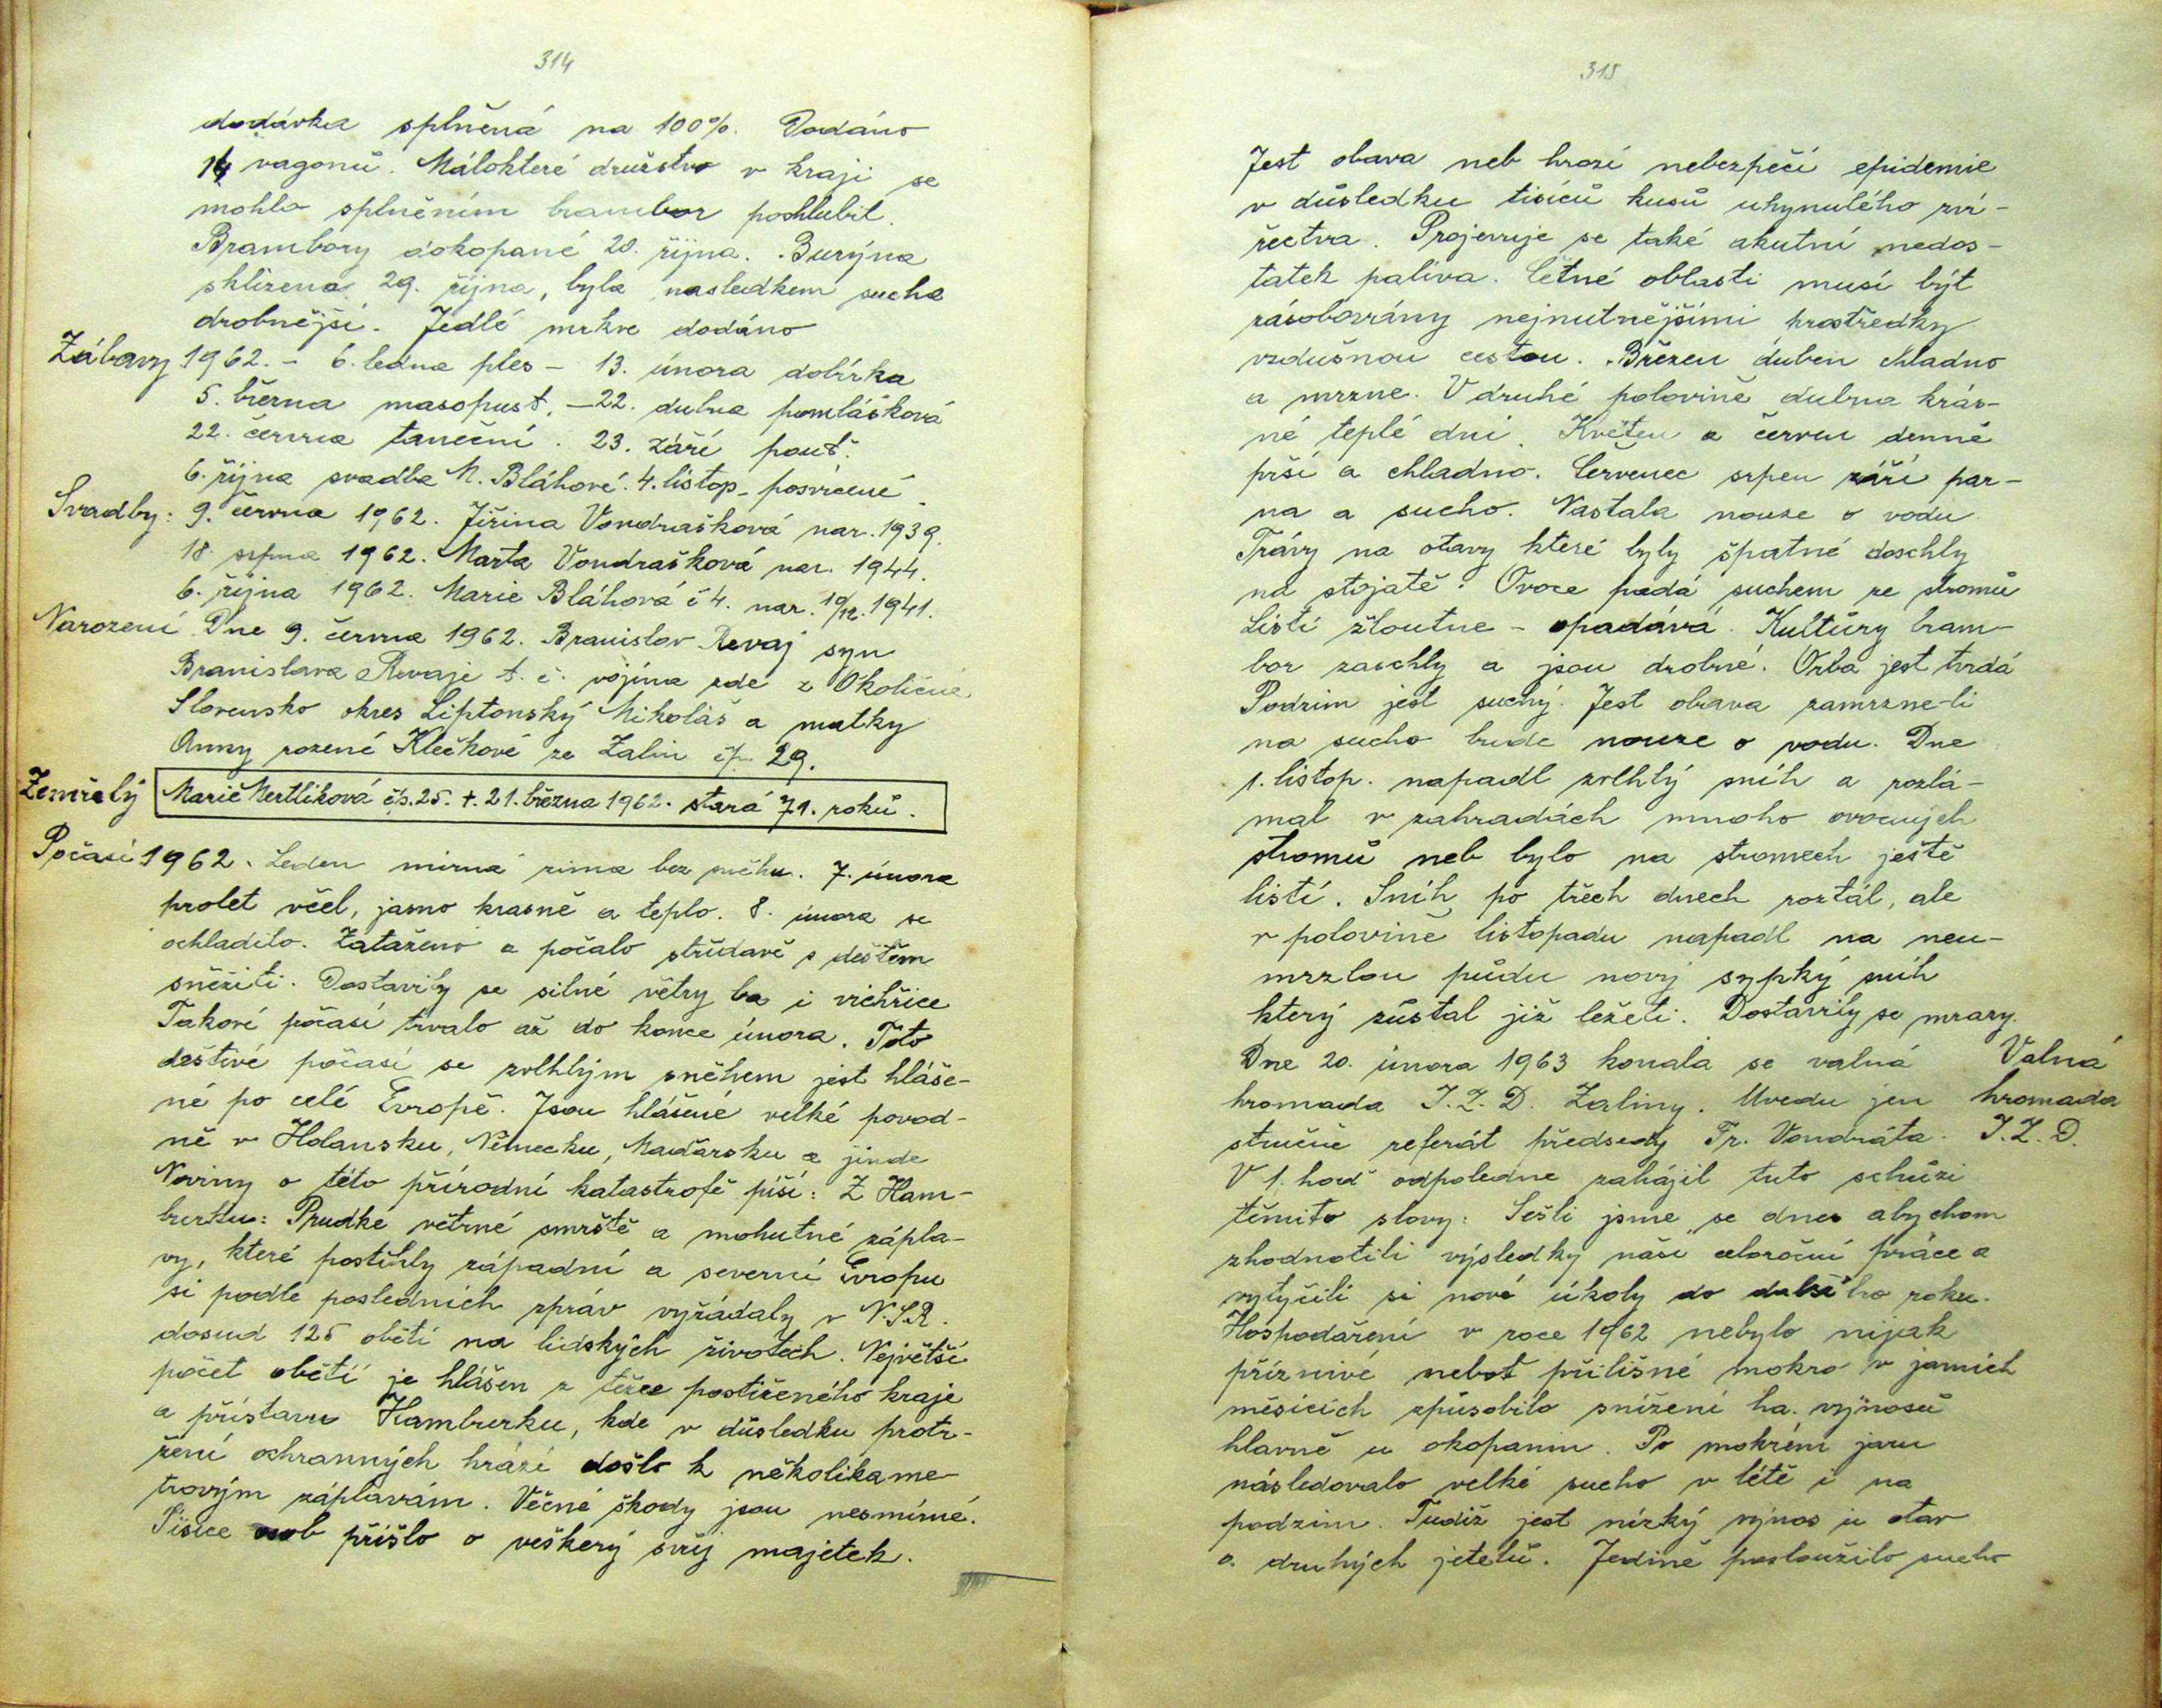 314
dodávka splněná na 100%. Dodáno
14 vagonů. Málokteré družstvo v kraji se
mohlo splněním brambor pochlubit.
Brambory dokopané 20. října. Burýna
sklizena 29. října, byla nasledkem sucha
drobnější. Jedlé mrkve dodáno
Zábavy 1962. - 6. ledna ples - 13. února dobírka
5. března masopust. - 22. dubna pomlášková
22. června taneční. 23. září pouť.
6. října svadba M. Bláhové. 4. listop. posvícené
Svadby: 9. června 1962. Jiřina Vondrašková nar. 1939.
18. srpna 1962. Marta Vondrašková nar. 1944.
6. října 1962. Marie Bláhová č 4. nar. 10/12. 1941.
Narození Dne 9. června 1962. Branislav Revaj syn
Branislava Revaje t. č. vojína zde z Okoličné
Slovensko okres Liptonský Mikoláš a matky
Anny rozené Klečkové ze Zalin čp. 29.
Zemřelý Marie Mertlíková čís. 25. +. 21. března 1962. stará 71. roků.
Počasí 1962. Leden mírná zima bez sněhu. 7. února
prolet včel, jasno krasně a teplo. 8. února se
ochladilo. Zataženo a počalo střídavě s deštěm
sněžiti. Dostavily se silné větry ba i vichřice
Takové počasí trvalo až do konce února. Toto
deštivé počasí se zvlhlým sněhem jest hláše-
né po celé Evropě. Jsou hlášené velké povod-
ně v Holansku, Německu, Maďarsku a jinde
Noviny o této přírodní katastrofě píší: Z Ham-
burku: Prudké větrné smrště a mohutné zápla-
vy, které postihly západní a severní Evropu
si podle posledních zpráv vyžádaly v N.S.R.
dosud 125 obětí na lidských životech. Největší
počet obětí je hlášen z těžce postiženého kraje
a přístavu Hamburku, kde v důsledku protr-
žení ochranných hrází došlo k několikame-
trovým záplavám. Věcné škody jsou nesmírné.
Tisíce osob přišlo o veškerý svůj majetek.
315
Jest obava neb hrozí nebezpečí epidemie
v důsledku tisíců kusů uhynulého zví-
řectva. Projevuje se také akutní nedos-
tatek paliva. Četné oblasti musí být
zásobovány nejnutnějšími prostředky
vzdušnou cestou. Březen duben chladno
a mrzne. V druhé polovině dubna krás-
né teplé dni. Květen a červen denně
prší a chladno. Červenec srpen září par-
na a sucho. Nastala nouze o vodu
Trávy na otavy které byly špatné doschly
na stojatě. Ovoce padá suchem ze stromů
Listí žloutne - opadává. Kultúry bram-
bor zaschly a jsou drobné. Orba jest tvrdá
Podzim jest suchý. Jest obava zamrzne-li
na sucho bude nouze o vodu. Dne
1. listop. napadl zvlhlý sníh a rozlá-
mal v zahradách mnoho ovocných
stromů neb bylo na stromech ještě
listí. Sníh po třech dnech roztál, ale
v polovině listopadu napadl na neu-
mrzlou půdu nový sypký sníh
který zůstal již ležeti. Dostavily se mrazy.
Dne 20. února 1963 konala se valná Valná
hromada J.Z.D. Zaliny. Uvedu jen hromada
stručně referát předsedy Fr. Vondráta. J.Z.D.
V 1. hod odpoledne zahájil tuto schůzi
těmito slovy: Sešli jsme se dnes abychom
zhodnotili výsledky naší celoroční práce a
vytyčili si nové úkoly do dalšího roku.
Hospodaření v roce 1962 nebylo nijak
příznivé nebot přílišné mokro v jarních
měsících způsobilo snížení ha. výnosů
hlavně u okopanin. Po mokrém jaru
následovalo velké sucho v létě i na
podzim. Tudiž jest nízký výnos u otav
a druhých jetelů. Jedině posloužilo sucho